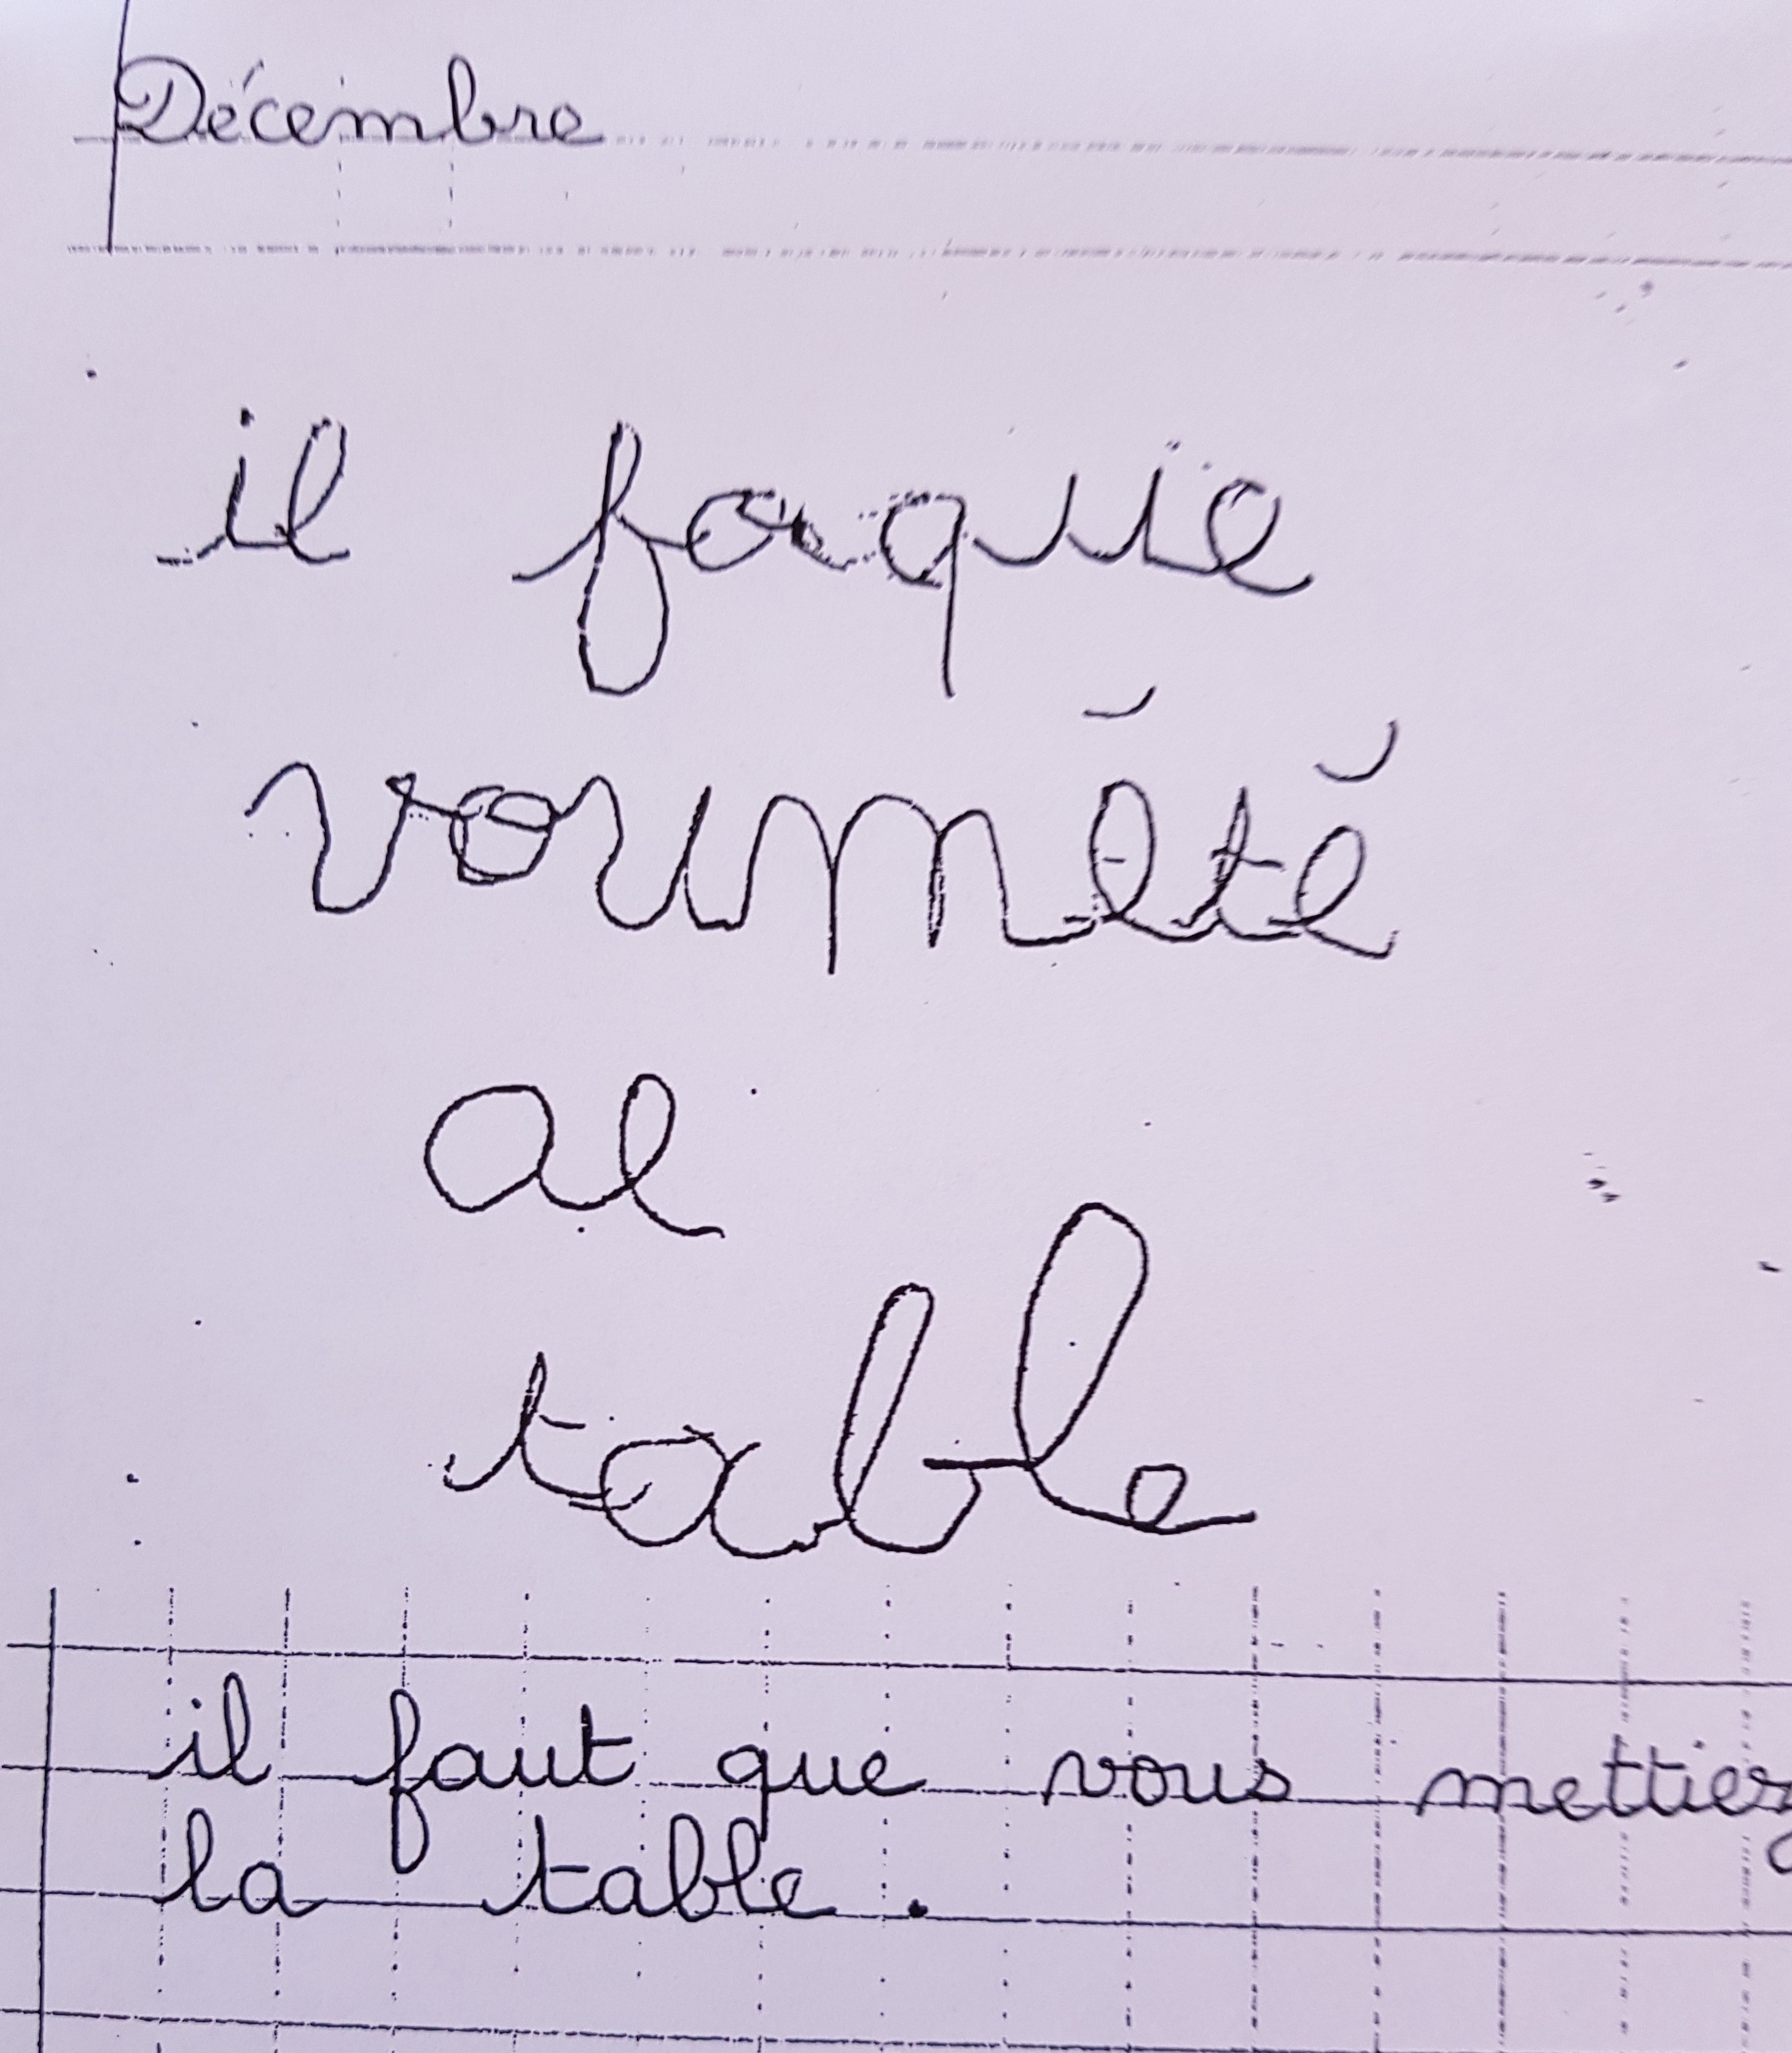 Décembre
il foquie
voumété
ae
table
il faut que vous mettiez
la table.